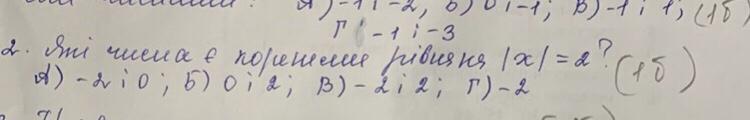 А) -1 і -2, Б) 0 і -1; В) -1 і 1; (1б)
Г -1 і -3
2. Які числа є коренями рівняня |x| = 2? (1б)
А) -2 і 0; Б) 0 і 2; В) -2 і 2; Г) -2